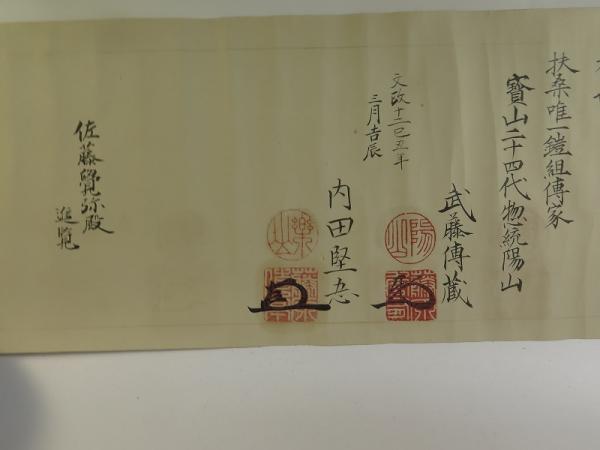 扶桑唯一鎧組傳家
寳山二十四代惣統陽山
武藤傳蔵
文政十二己丑年
三月吉辰
内田堅吾
佐藤彌殿
進覧